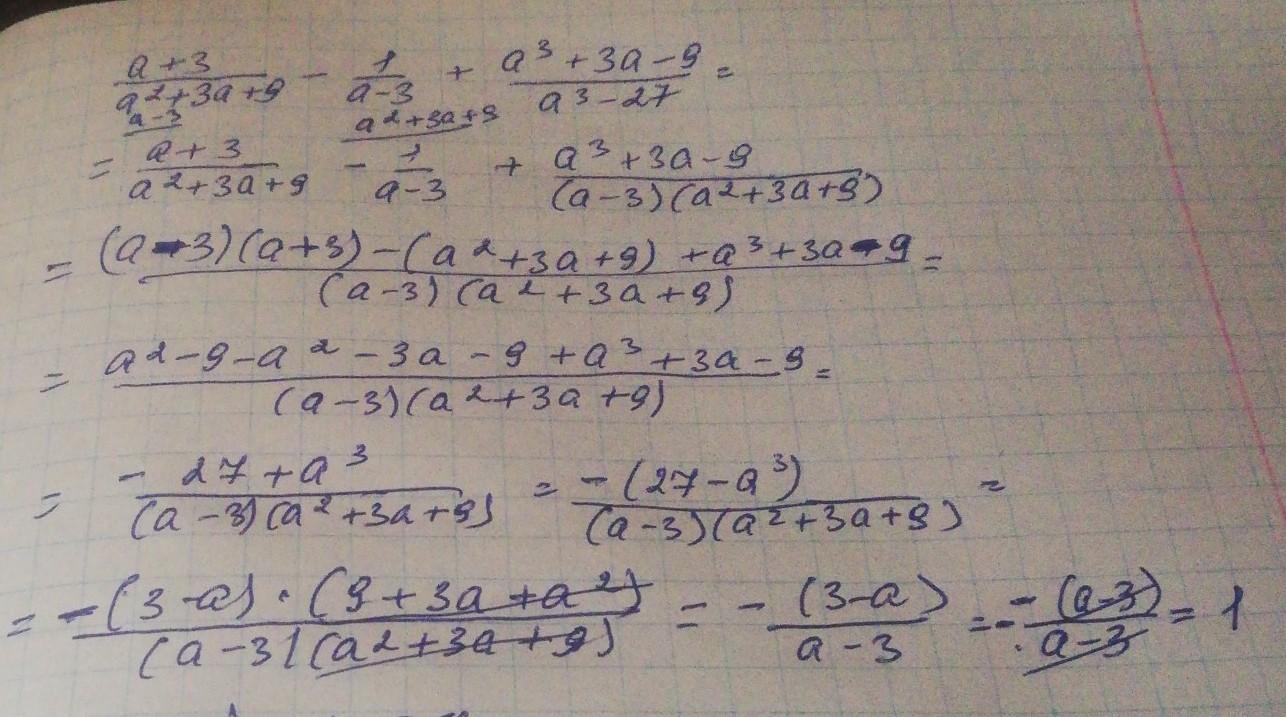 (a+3)/(a²+3a+9) - 1/(a-3) + (a³+3a-9)/(a³-27) =
a-3 a²+3a+9
= (a+3)/(a²+3a+9) - 1/(a-3) + (a³+3a-9)/((a-3)(a²+3a+9))
= ((a-3)(a+3)-(a²+3a+9)+a³+3a-9)/((a-3)(a²+3a+9)) =
= (a²-9-a²-3a-9+a³+3a-9)/((a-3)(a²+3a+9)) =
= (-27+a³)/((a-3)(a²+3a+9)) = (-(27-a³))/((a-3)(a²+3a+9)) =
= (-(3-a)·(9+3a+a²))/((a-3)(a²+3a+9)) = - (3-a)/(a-3) = - (-(a-3))/(a-3) = 1